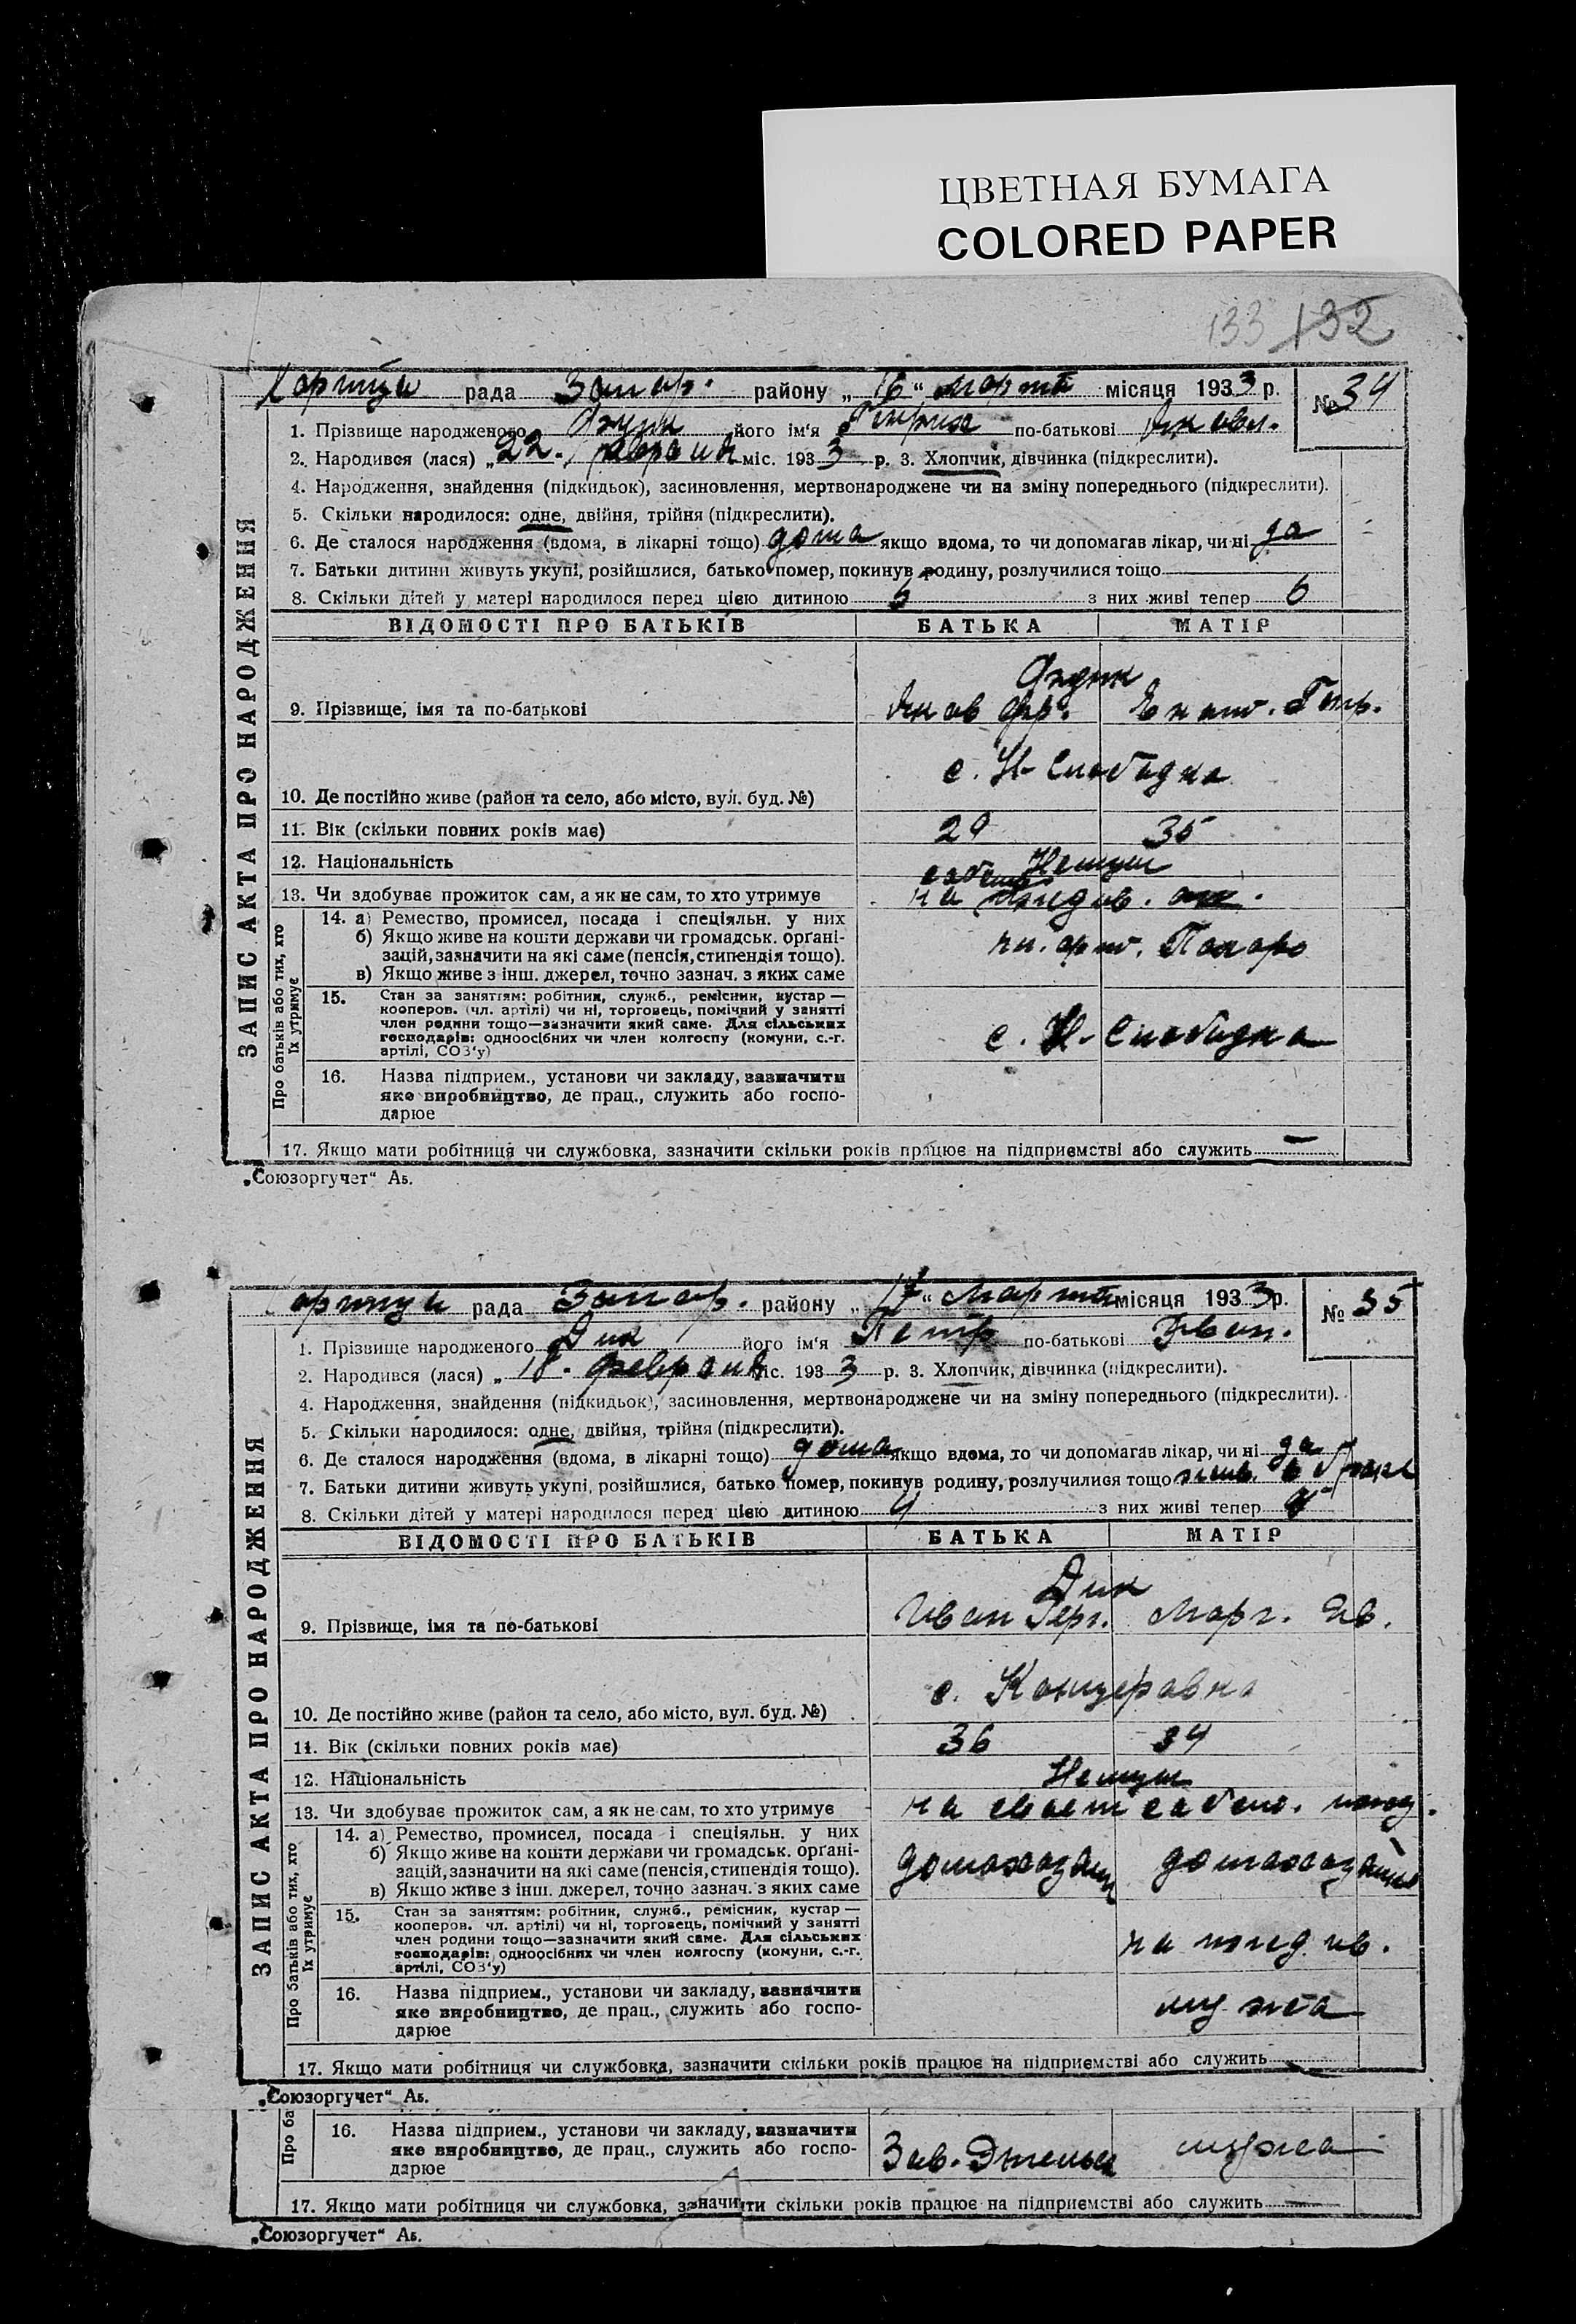 ЦВЕТНАЯ БУМАГА
COLORED PAPER
133 132
рада Запор. району „ 16 “ марта місяця 1933 р. № 34
1. Прізвище народженого його ім'я Генрих по-батькові Яковл.
2. Народився (лася) „ 22. февраля міс. 1933 р. 3. Хлопчик, дівчинка (підкреслити).
4. Народження, знайдення (підкидьок), засиновлення, мертвонароджене чи на зміну попереднього (підкреслити).
5. Скільки народилося: одне, двійня, трійня (підкреслити).
6. Де сталося народження (вдома, в лікарні тощо) дома якщо вдома, то чи допомагав лікар, чи ні да
7. Батьки дитини живуть укупі, розійшлися, батько помер, покинув родину, розлучилися тощо
8. Скільки дітей у матері народилося перед цією дитиною 6 з них живі тепер 6
ЗАПИС АКТА ПРО НАРОДЖЕННЯ
ВІДОМОСТІ ПРО БАТЬКІВ БАТЬКА МАТІР
9. Прізвище, імя та по-батькові Яков Фр. Екат. Генр.
с. Н-Слободка
10. Де постійно живе (район та село, або місто, вул. буд. №)
11. Вік (скільки повних років має) 29 35
12. Національність Немцы
13. Чи здобуває прожиток сам, а як не сам, то хто утримує на иждив.
Про батьків або тих, хто їх утримує
14. а) Ремество, промисел, посада і спеціяльн. у них
б) Якщо живе на кошти держави чи громадськ. орґані-
зацій, зазначити на які саме (пенсія, стипендія тощо).
в) Якщо живе з інш. джерел, точно зазнач. з яких саме
чл. арт.
15. Стан за заняттям: робітник, служб., ремісник, кустар —
кооперов. (чл. артілі) чи ні, торговець, помічний у занятті
член родини тощо—зазначити який саме. Для сільських
господарів: одноосібних чи член колгоспу (комуни, с.-г.
артілі, СОЗ'у)
с. Н-Слободка
16. Назва підприєм., установи чи закладу, зазначити
яке виробництво, де прац., служить або госпо-
дарює
17. Якщо мати робітниця чи службовка, зазначити скільки років працює на підприємстві або служить —
„Союзоргучет“ Аб.
рада Запор. району „ 17 “ марта місяця 1933 р. № 35
1. Прізвище народженого Дик його ім'я Петр по-батькові Иван.
2. Народився (лася) „ 18. февраля міс. 1933 р. 3. Хлопчик, дівчинка (підкреслити).
4. Народження, знайдення (підкидьок), засиновлення, мертвонароджене чи на зміну попереднього (підкреслити).
5. Скільки народилося: одне, двійня, трійня (підкреслити).
6. Де сталося народження (вдома, в лікарні тощо) дома якщо вдома, то чи допомагав лікар, чи ні да
7. Батьки дитини живуть укупі, розійшлися, батько помер, покинув родину, розлучилися тощо жив. в браке
8. Скільки дітей у матері народилося перед цією дитиною 4 з них живі тепер
ЗАПИС АКТА ПРО НАРОДЖЕННЯ
ВІДОМОСТІ ПРО БАТЬКІВ БАТЬКА МАТІР
Дик
9. Прізвище, імя та по-батькові Иван Герг. Марг. Ив.
с. Канцеровка
10. Де постійно живе (район та село, або місто, вул. буд. №)
11. Вік (скільки повних років має) 36 34
12. Національність Немцы
13. Чи здобуває прожиток сам, а як не сам, то хто утримує на своем собств. ижд.
Про батьків або тих, хто їх утримує
14. а) Ремество, промисел, посада і спеціяльн. у них
б) Якщо живе на кошти держави чи громадськ. орґані-
зацій, зазначити на які саме (пенсія, стипендія тощо).
в) Якщо живе з інш. джерел, точно зазнач. з яких саме
домохозяин домохозяйка
15. Стан за заняттям: робітник, служб., ремісник, кустар —
кооперов. чл. артілі) чи ні, торговець, помічний у занятті
член родини тощо—зазначити який саме. Для сільських
господарів: одноосібних чи член колгоспу (комуни, с.-г.
артілі, СОЗ'у)
на иждив.
16. Назва підприєм., установи чи закладу, зазначити
яке виробництво, де прац., служить або госпо-
дарює
мужа
17. Якщо мати робітниця чи службовка, зазначити скільки років працює на підприємстві або служить
„Союзоргучет“ Аб.
Про ба
16. Назва підприєм., установи чи закладу, зазначити
яке виробництво, де прац., служить або госпо-
дарює
Зав. мужа
17. Якщо мати робітниця чи службовка, зазначити скільки років працює на підприємстві або служить
„Союзоргучет“ Аб.